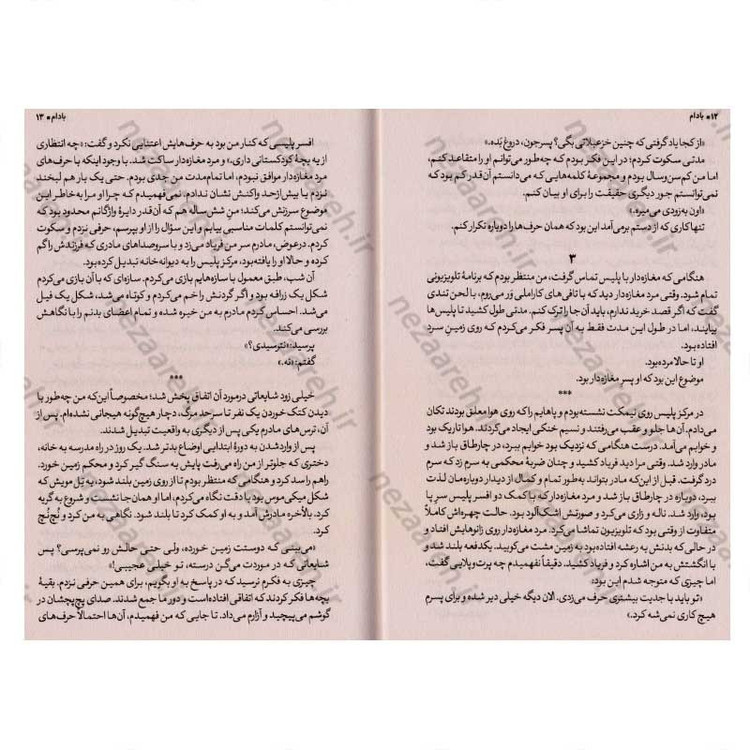 ۱۲ • بادام
«از کجا یاد گرفتی که چنین خزعبلاتی بگی؟ پسرجون، دروغ بَده.»
مدتی سکوت کردم؛ در این فکر بودم که چه‌طور می‌توانم او را متقاعد کنم،
اما من کم‌سن‌وسال بودم و مجموعهٔ کلمه‌هایی که می‌دانستم آن‌قدر کم بود که
نمی‌توانستم جور دیگری حقیقت را برای او بیان کنم.
«اون به‌زودی می‌میره.»
تنها کاری که از دستم برمی‌آمد این بود که همان حرف‌ها را دوباره تکرار کنم.
۳
هنگامی که مغازه‌دار با پلیس تماس گرفت، من منتظر بودم که برنامهٔ تلویزیونی
تمام شود. وقتی مرد مغازه‌دار دید که با تافی‌های کاراملی وَر می‌روم، با لحن تندی
گفت که اگر قصد خرید ندارم، باید آن‌جا را ترک کنم. مدتی طول کشید تا پلیس‌ها
بیایند، اما در طول این مدت فقط به آن پسر فکر می‌کردم که روی زمینِ سرد
افتاده بود.
او تا حالا مرده بود.
موضوع این بود که او پسر مغازه‌دار بود.
***
در مرکز پلیس روی نیمکت نشسته بودم و پاهایم را که روی هوا معلق بودند تکان
می‌دادم. آن‌ها جلو و عقب می‌رفتند و نسیم خنکی ایجاد می‌کردند. هوا تاریک بود
و خوابم می‌آمد. درست هنگامی که نزدیک بود خوابم ببرد، در چارطاق باز شد و
مادر وارد شد. وقتی مرا دید فریاد کشید و چنان ضربهٔ محکمی به سرم زد که سرم
درد گرفت. قبل از این‌که مادر بتواند به‌طور تمام و کمال از دیدار دوباره‌مان لذت
ببرد، دوباره در چارطاق باز شد و مرد مغازه‌دار که با کمک دو افسر پلیس سرِ پا
بود، وارد شد. ناله و زاری می‌کرد و صورتش اشک‌آلود بود. حالت چهره‌اش کاملاً
متفاوت از وقتی بود که تلویزیون تماشا می‌کرد. مرد مغازه‌دار روی زانوهایش افتاد و
در حالی که بدنش به رعشه افتاده بود به زمین مشت می‌کوبید. یکدفعه بلند شد و
با انگشتش به من اشاره کرد و فریاد کشید. دقیقاً نفهمیدم چه پرت‌وپلایی گفت،
اما چیزی که متوجه شدم این بود:
«تو باید با جدیت بیشتری حرف می‌زدی. الان دیگه خیلی دیر شده و برای پسرم
هیچ کاری نمی‌شه کرد.»
بادام • ۱۳
افسر پلیسی که کنار من بود به حرف‌هایش اعتنایی نکرد و گفت: «چه انتظاری
از یه بچهٔ کودکستانی داری.» و مرد مغازه‌دار ساکت شد. با وجود اینکه با حرف‌های
مرد مغازه‌دار موافق نبودم، اما تمام‌مدت من جدی بودم. حتی یک بار هم لبخند
نزدم یا بیش‌ازحد واکنش نشان ندادم. نمی‌فهمیدم که چرا او مرا به‌خاطر این
موضوع سرزنش می‌کند؛ منِ شش‌ساله هم که آن‌قدر دایرهٔ واژگانم محدود بود که
نمی‌توانستم کلمات مناسبی بیابم و این سؤال را از او بپرسم، حرفی نزدم و سکوت
کردم. درعوض، مادرم سر من فریاد می‌زد و با سروصداهای مادری که فرزندش را گم
کرده و حالا او را یافته بود، مرکز پلیس را به دیوانه‌خانه تبدیل کرده بود.
آن شب، طبق معمول با سازه‌هایم بازی می‌کردم. سازه‌ای که با آن بازی می‌کردم
شکل یک زرافه بود و اگر گردنش را خم می‌کردم و کوتاه می‌شد، شکل یک فیل
می‌شد. احساس کردم مادرم به من خیره شده و تمام اعضای بدنم را با نگاهش
بررسی می‌کند.
پرسید: «نترسیدی؟»
گفتم: «نه.»
***
خیلی زود شایعاتی درمورد آن اتفاق پخش شد؛ مخصوصاً این‌که من چه‌طور با
دیدن کتک خوردن یک نفر تا سرحد مرگ، دچار هیچ‌گونه هیجانی نشده‌ام. پس از
آن، ترس‌های مادرم یکی پس از دیگری به واقعیت تبدیل شدند.
پس از واردشدن به دورهٔ ابتدایی اوضاع بدتر شد. یک روز در راه مدرسه به خانه،
دختری که جلوتر از من راه می‌رفت پایش به سنگ گیر کرد و محکم زمین خورد.
راهم را سد کرد و هنگامی که منتظر بودم تا از روی زمین بلند شود، به تِل مویش که
شکل میکی‌موس بود با دقت نگاه می‌کردم، اما او همان‌جا نشست و شروع به گریه
کرد. بالأخره مادرش آمد و به او کمک کرد تا بلند شود. نگاهی به من کرد و نُچ‌نُچ
کرد.
«می‌بینی که دوستت زمین خورده، ولی حتی حالش رو نمی‌پرسی؟ پس
شایعاتی که در موردت می‌گن درسته، تو خیلی عجیبی!»
چیزی به فکرم نرسید که در پاسخ به او بگویم، برای همین حرفی نزدم. بقیهٔ
بچه‌ها فکر کردند که اتفاقی افتاده است و دور ما جمع شدند. صدای پچ‌پچشان در
گوشم می‌پیچید و آزارم می‌داد. تا جایی که من فهمیدم، آن‌ها احتمالاً حرف‌های
nezaareh.ir